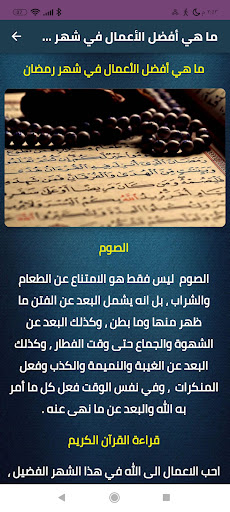 ما هي أفضل الأعمال في شهر ...
ما هي أفضل الأعمال في شهر رمضان
الصوم
الصوم ليس فقط هو الامتناع عن الطعام
والشراب ، بل انه يشمل البعد عن الفتن ما
ظهر منها وما بطن ، وكذلك البعد عن
الشهوة والجماع حتى وقت الفطار ، وكذلك
البعد عن الغيبة والنميمة والكذب وفعل
المنكرات ، وفي نفس الوقت فعل كل ما أمر
به الله والبعد عن ما نهى عنه .
قراءة القرآن الكريم
احب الاعمال الى الله في هذا الشهر الفضيل ,